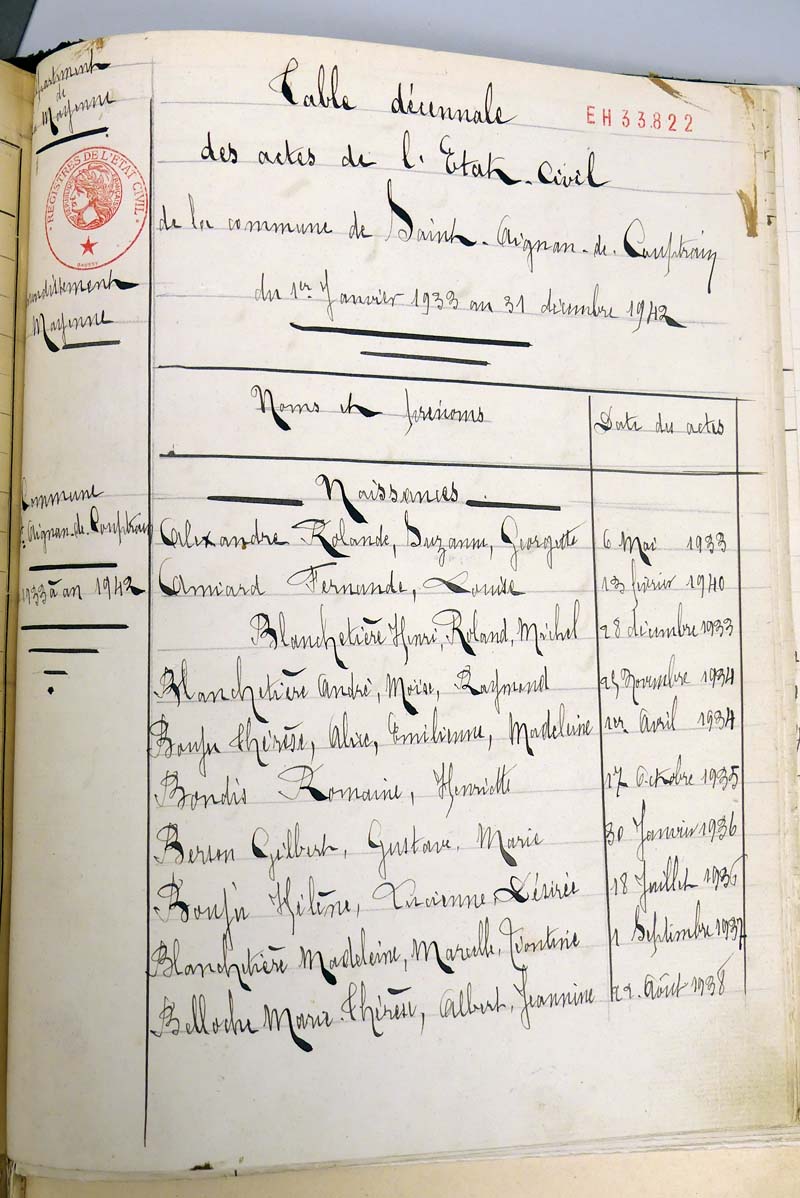 Département
de
la Mayenne
REGISTRES DE L'ETAT CIVIL
Table décennale
EH 33.822
des actes de l'Etat-Civil
de la commune de Saint-Aignan-de-Couptrain
du 1er Janvier 1933 au 31 décembre 1942
Arrondissement
Mayenne
Noms et prénoms
Date des actes
Commune
St Aignan-de-Couptrain
1933 à an 1942
Naissances
Alexandre Rolande, Suzanne, Georgette 6 Mai 1933
Amiard Fernande, Louise 13 février 1940
Blanchetière Henri, Roland, Michel 28 décembre 1933
Blanchetière André, Moïse, Raymond 25 Novembre 1934
Thérèse, Alice, Emilienne, Madeleine 1er Avril 1934
Bondis Romaine, Henriette 17 Octobre 1935
Berson Gilbert, Gustave, Marie 30 Janvier 1936
Hélène, Lucienne, Désirée 18 Juillet 1936
Blanchetière Madeleine, Marcelle, 1 Septembre 1937
Belloche Marie-Thérèse, Albert, Jeannine 22 Août 1938